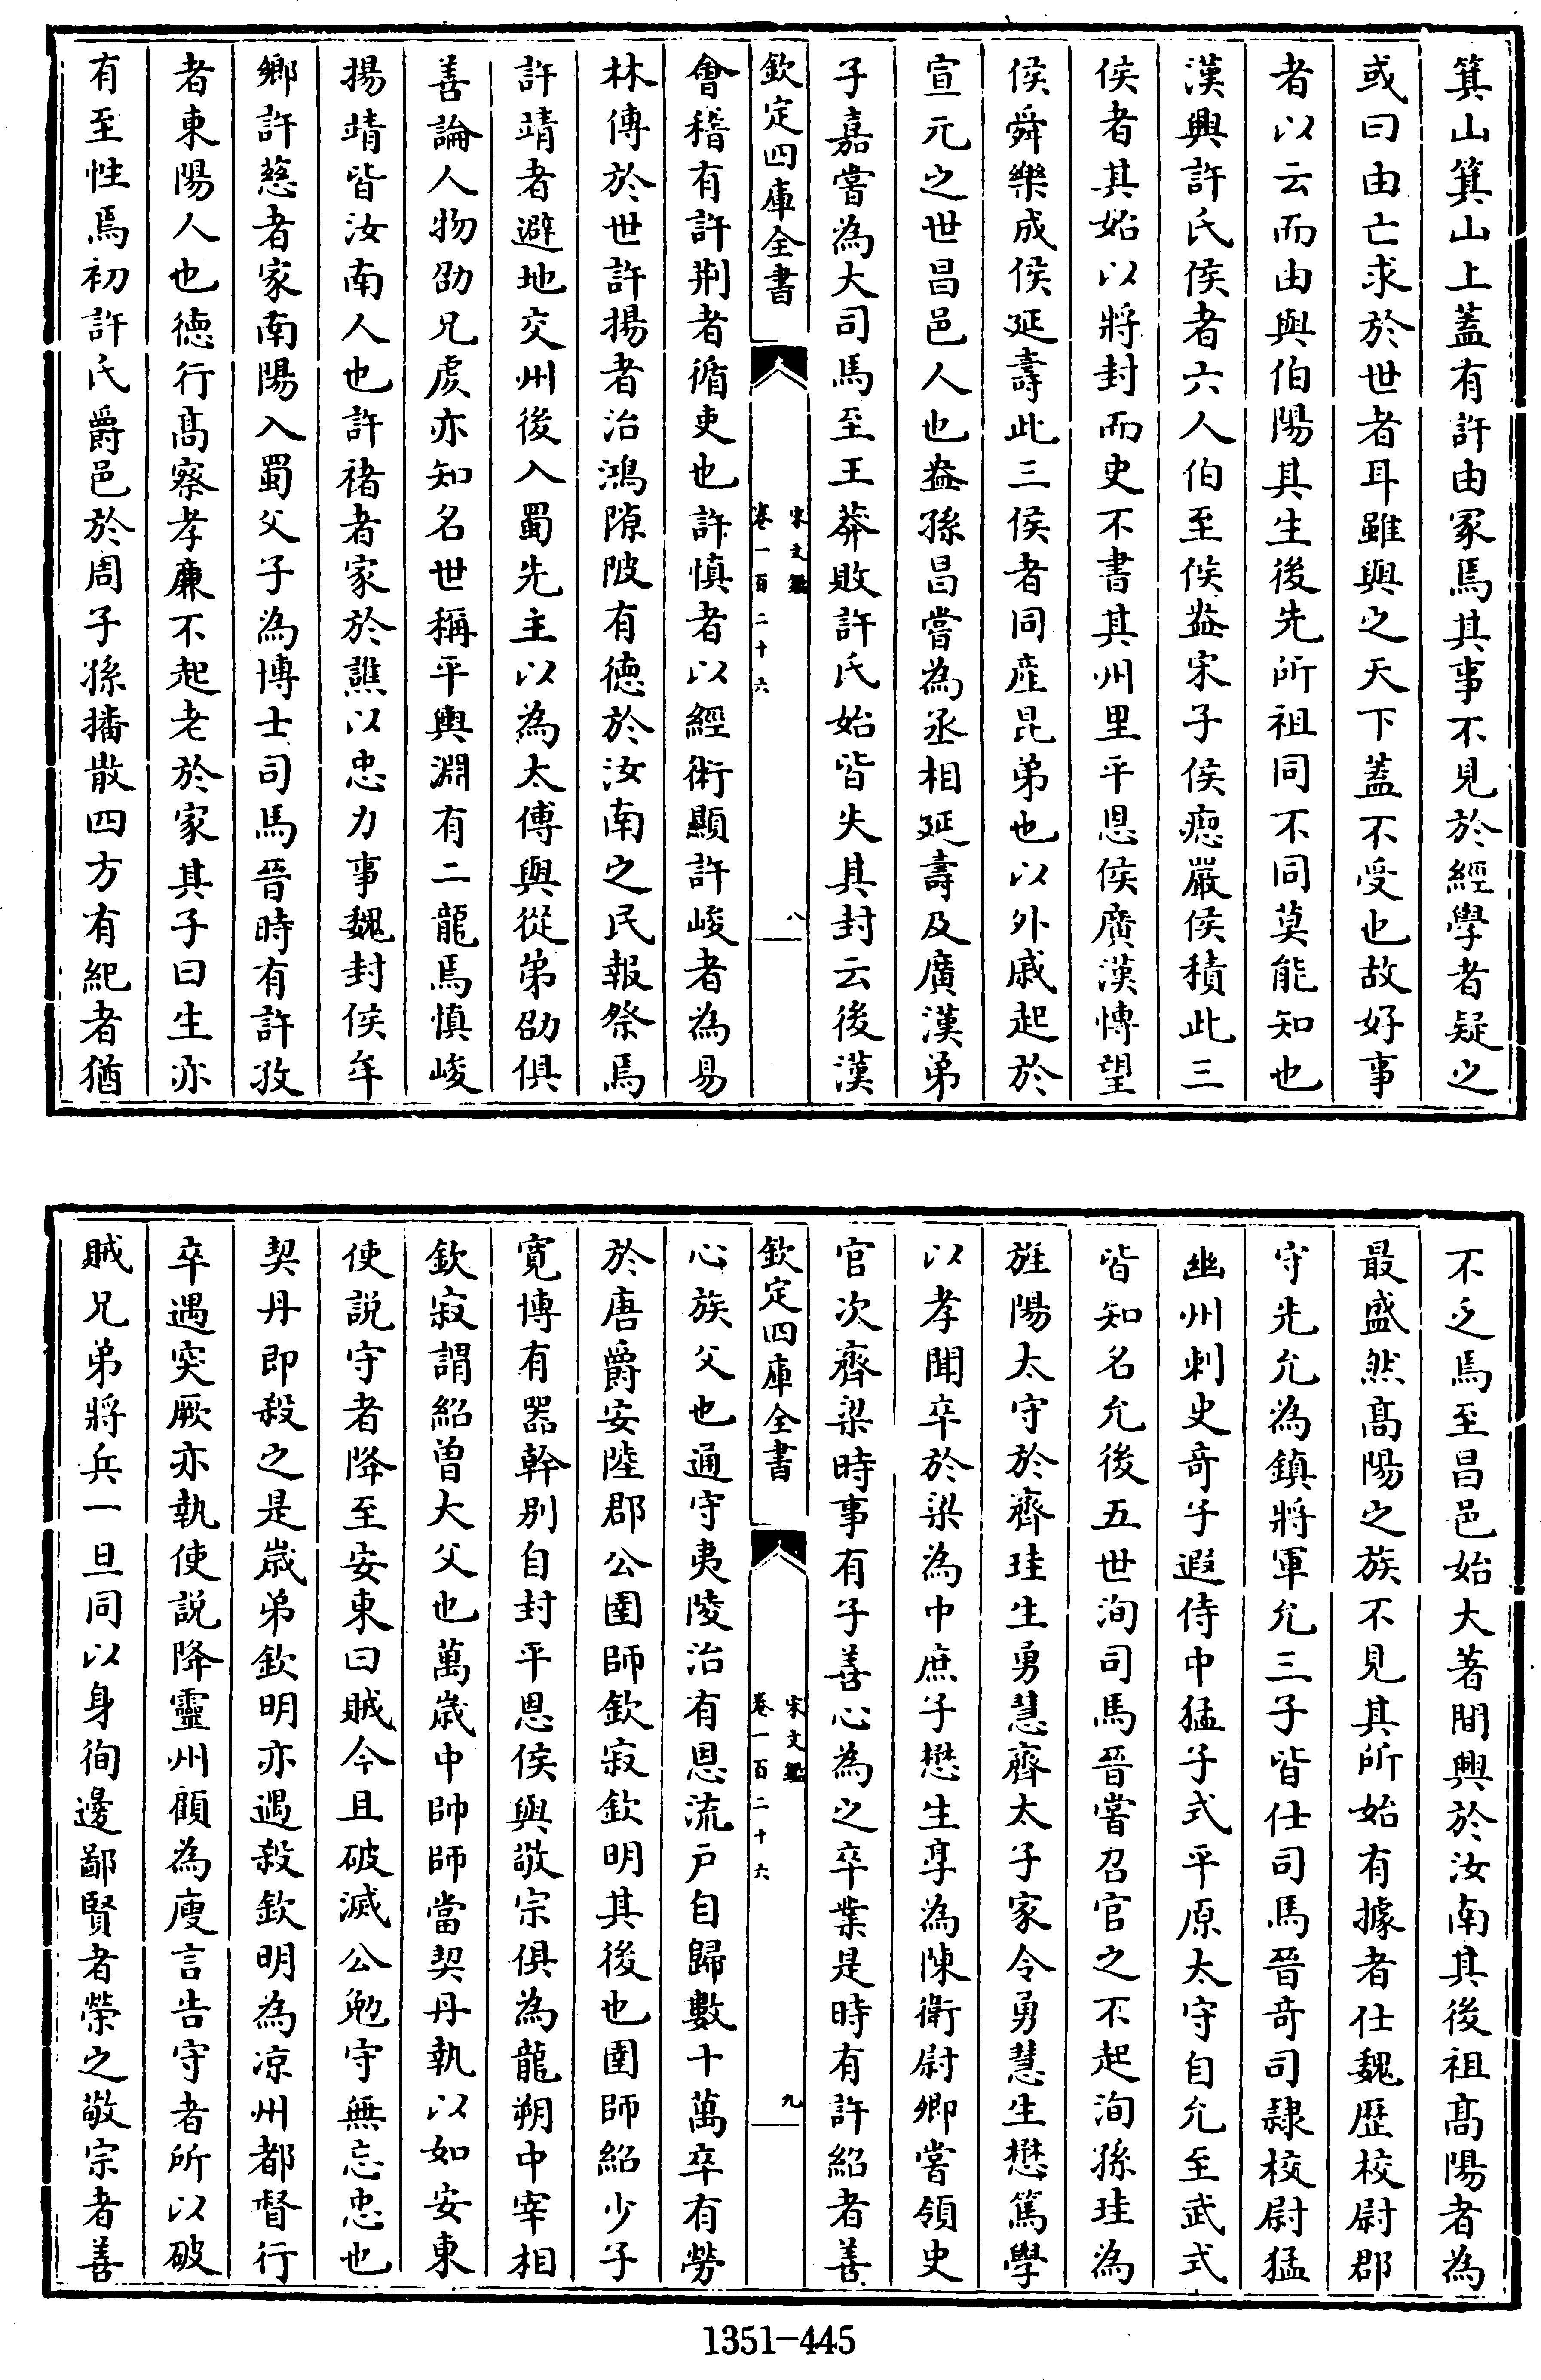 箕山箕山上蓋有許由冡焉其事不見於經學者疑之
或曰由亡求於世者耳雖與之天下蓋不受也故好事
者以云而由與伯陽其生後先所祖同不同莫能知也
漢興許氏侯者六人伯至侯盎宋子侯瘛嚴侯積此三
侯者其始以將封而史不書其州里平恩侯廣漢愽望
侯舜樂成侯延壽此三侯者同産昆弟也以外戚起於
宣元之世昌邑人也盎孫昌嘗為丞相延壽及廣漢弟
子嘉嘗為大司馬至王莽敗許氏始皆失其封云後漢
欽定四庫全書
宋文鑑
卷一百二十六
八
會稽有許荆者循吏也許慎者以經術顯許峻者為易
林傳於世許揚者治鴻隙陂有徳於汝南之民報祭焉
許靖者避地交州後入蜀先主以為太傅與從弟劭俱
善論人物劭兄䖍亦知名世稱平輿淵有二龍焉慎峻
揚靖皆汝南人也許禇者家於譙以忠力事魏封侯牟
鄉許慈者家南陽入蜀父子為博士司馬晉時有許孜
者東陽人也徳行髙察孝廉不起老於家其子曰生亦
有至性焉初許氏爵邑於周子孫播散四方有紀者猶
不乏焉至昌邑始大著間興於汝南其後祖髙陽者為
最盛然髙陽之族不見其所始有據者仕魏歴校尉郡
守先允為鎮將軍允三子皆仕司馬晉竒司隷校尉猛
幽州刺史竒子遐侍中猛子式平原太守自允至武式
皆知名允後五世洵司馬晉嘗召官之不起洵孫珪為
旌陽太守於齊珪生勇慧齊太子家令勇慧生懋篤學
以孝聞卒於梁為中庶子懋生享為陳衛尉卿嘗領史
官次齊梁時事有子善心為之卒業是時有許紹者善
欽定四庫全書
宋文鑑
卷一百二十六
九
心族父也通守夷陵治有恩流户自歸數十萬卒有勞
於唐爵安陸郡公圉師欽寂欽明其後也圉師紹少子
寛博有器幹别自封平恩侯與敬宗俱為龍朔中宰相
欽寂謂紹曽大父也萬歳中帥師當契丹執以如安東
使説守者降至安東曰賊今且破滅公勉守無忘忠也
契丹即殺之是歳弟欽明亦遇殺欽明為凉州都督行
卒遇突厥亦執使説降靈州顧為廋言告守者所以破
賊兄弟將兵一旦同以身徇邊鄙賢者榮之敬宗者善
1351-445